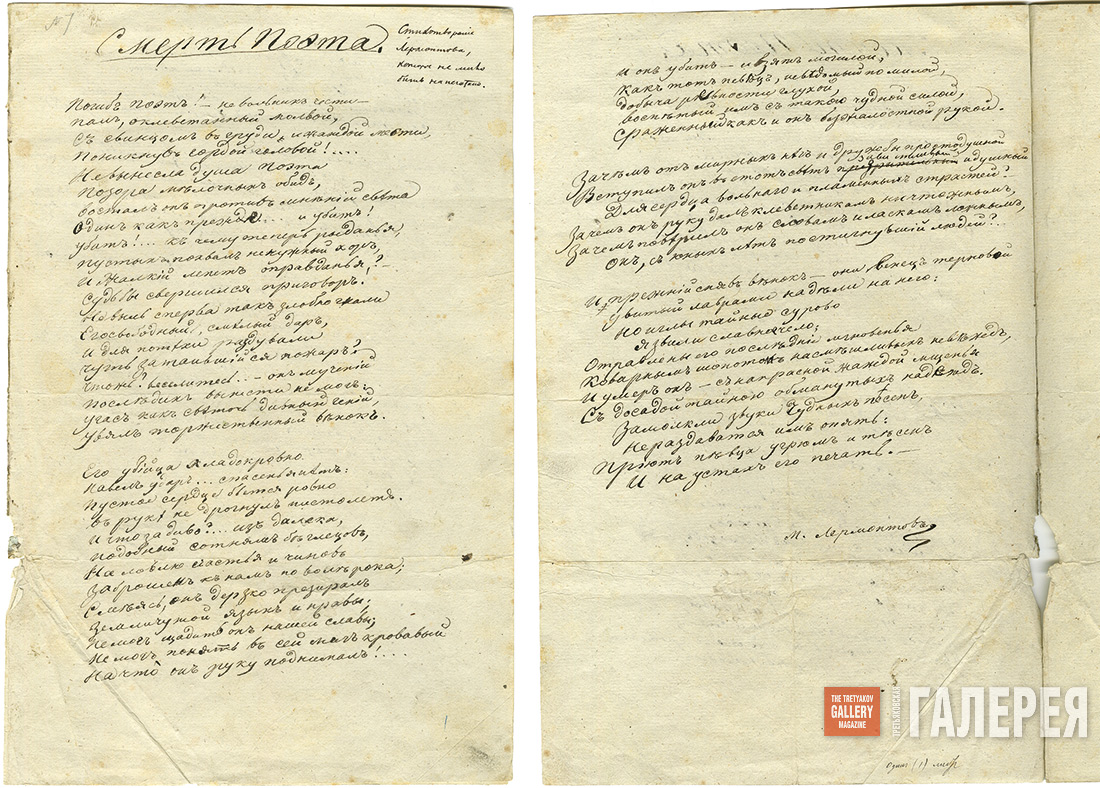 № 7
Смерть Поэта.
Стихотворение
Лермонтова,
которое не может
быть напечатано.
Погибъ поэтъ! – невольникъ чести –
палъ, оклеветанный молвой,
Съ свинцомъ въ груди, и жаждой мести,
Поникнувъ гордой головой!....
Не вынесла душа Поэта
Позора мѣлочныхъ обидъ,
возсталъ онъ противъ мнѣній свѣта
Одинъ какъ прежде.... и убитъ!
убитъ!... къ чему теперь рыданья,
пустыхъ похвалъ ненужный хоръ,
И жалкій лепетъ оправданья,? –
Судьбы свершился приговоръ.
Не вы ль сперва такъ злобно гнали
Его свободный, смѣлый даръ,
И для потѣхи раздували
чуть затаившійся пожаръ?
Что же? веселитесь... – онъ мученій
Послѣднихъ вынести не могъ:
угасъ какъ свѣточъ дивный геній,
увялъ торжественный вѣнокъ.
Его убійца хладнокровно
Навелъ ударъ... спасенья нѣтъ:
Пустое сердце бьется ровно
въ рукѣ не дрогнулъ пистолетъ.
И что за диво?... изъ далека,
подобный сотнямъ бѣглецовъ,
На ловлю счастья и чиновъ
Заброшенъ къ намъ по волѣ рока;
Смѣясь, онъ дерзко презиралъ
Земли чужой языкъ и нравы;
Не могъ щадить онъ нашей славы;
Не могъ понять въ сей мигъ кровавый
На что онъ руку поднималъ!....
И онъ убитъ – и взятъ могилой,
Какъ тотъ пѣвецъ, невѣдомый но милой,
добыча ревности глухой,
воспѣтый имъ съ такою чудной силой,
Сраженный какъ и онъ безжалостной рукой.
Зачѣмъ отъ мирныхъ нѣгъ и дружбы простодушной
Вступилъ онъ въ этотъ свѣтъ завистливый и душный
Для сердца вольнаго и пламенныхъ страстей?
Зачемъ онъ руку далъ клеветникамъ ничтожнымъ,
Зачемъ повѣрилъ онъ словамъ и ласкамъ ложнымъ,
Онъ, съ юныхъ лѣтъ постигнувшій людей?..
И прежній снявъ вѣнокъ – они венецъ терновой
увитый лаврами надѣли на него:
Но иглы тайные сурово
Язвили славное чело;
Отравлены его послѣдніе мгновенья
Коварнымъ шопотомъ насмѣшливыхъ невѣждъ,
И умеръ онъ – съ напрасной жаждой мщенья
Съ досадой тайною обманутыхъ надеждъ.
Замолкли звуки чудныхъ пѣсенъ,
Не раздаватся имъ опять:
Пріютъ пѣвца угрюмъ и тѣсенъ
И на устахъ его печать. –
М. Лермонтовъ
THE TRETYAKOV
GALLERY
MAGAZINE
ТРЕТЬЯКОВСКАЯ
ГАЛЕРЕЯ
один (1) лист